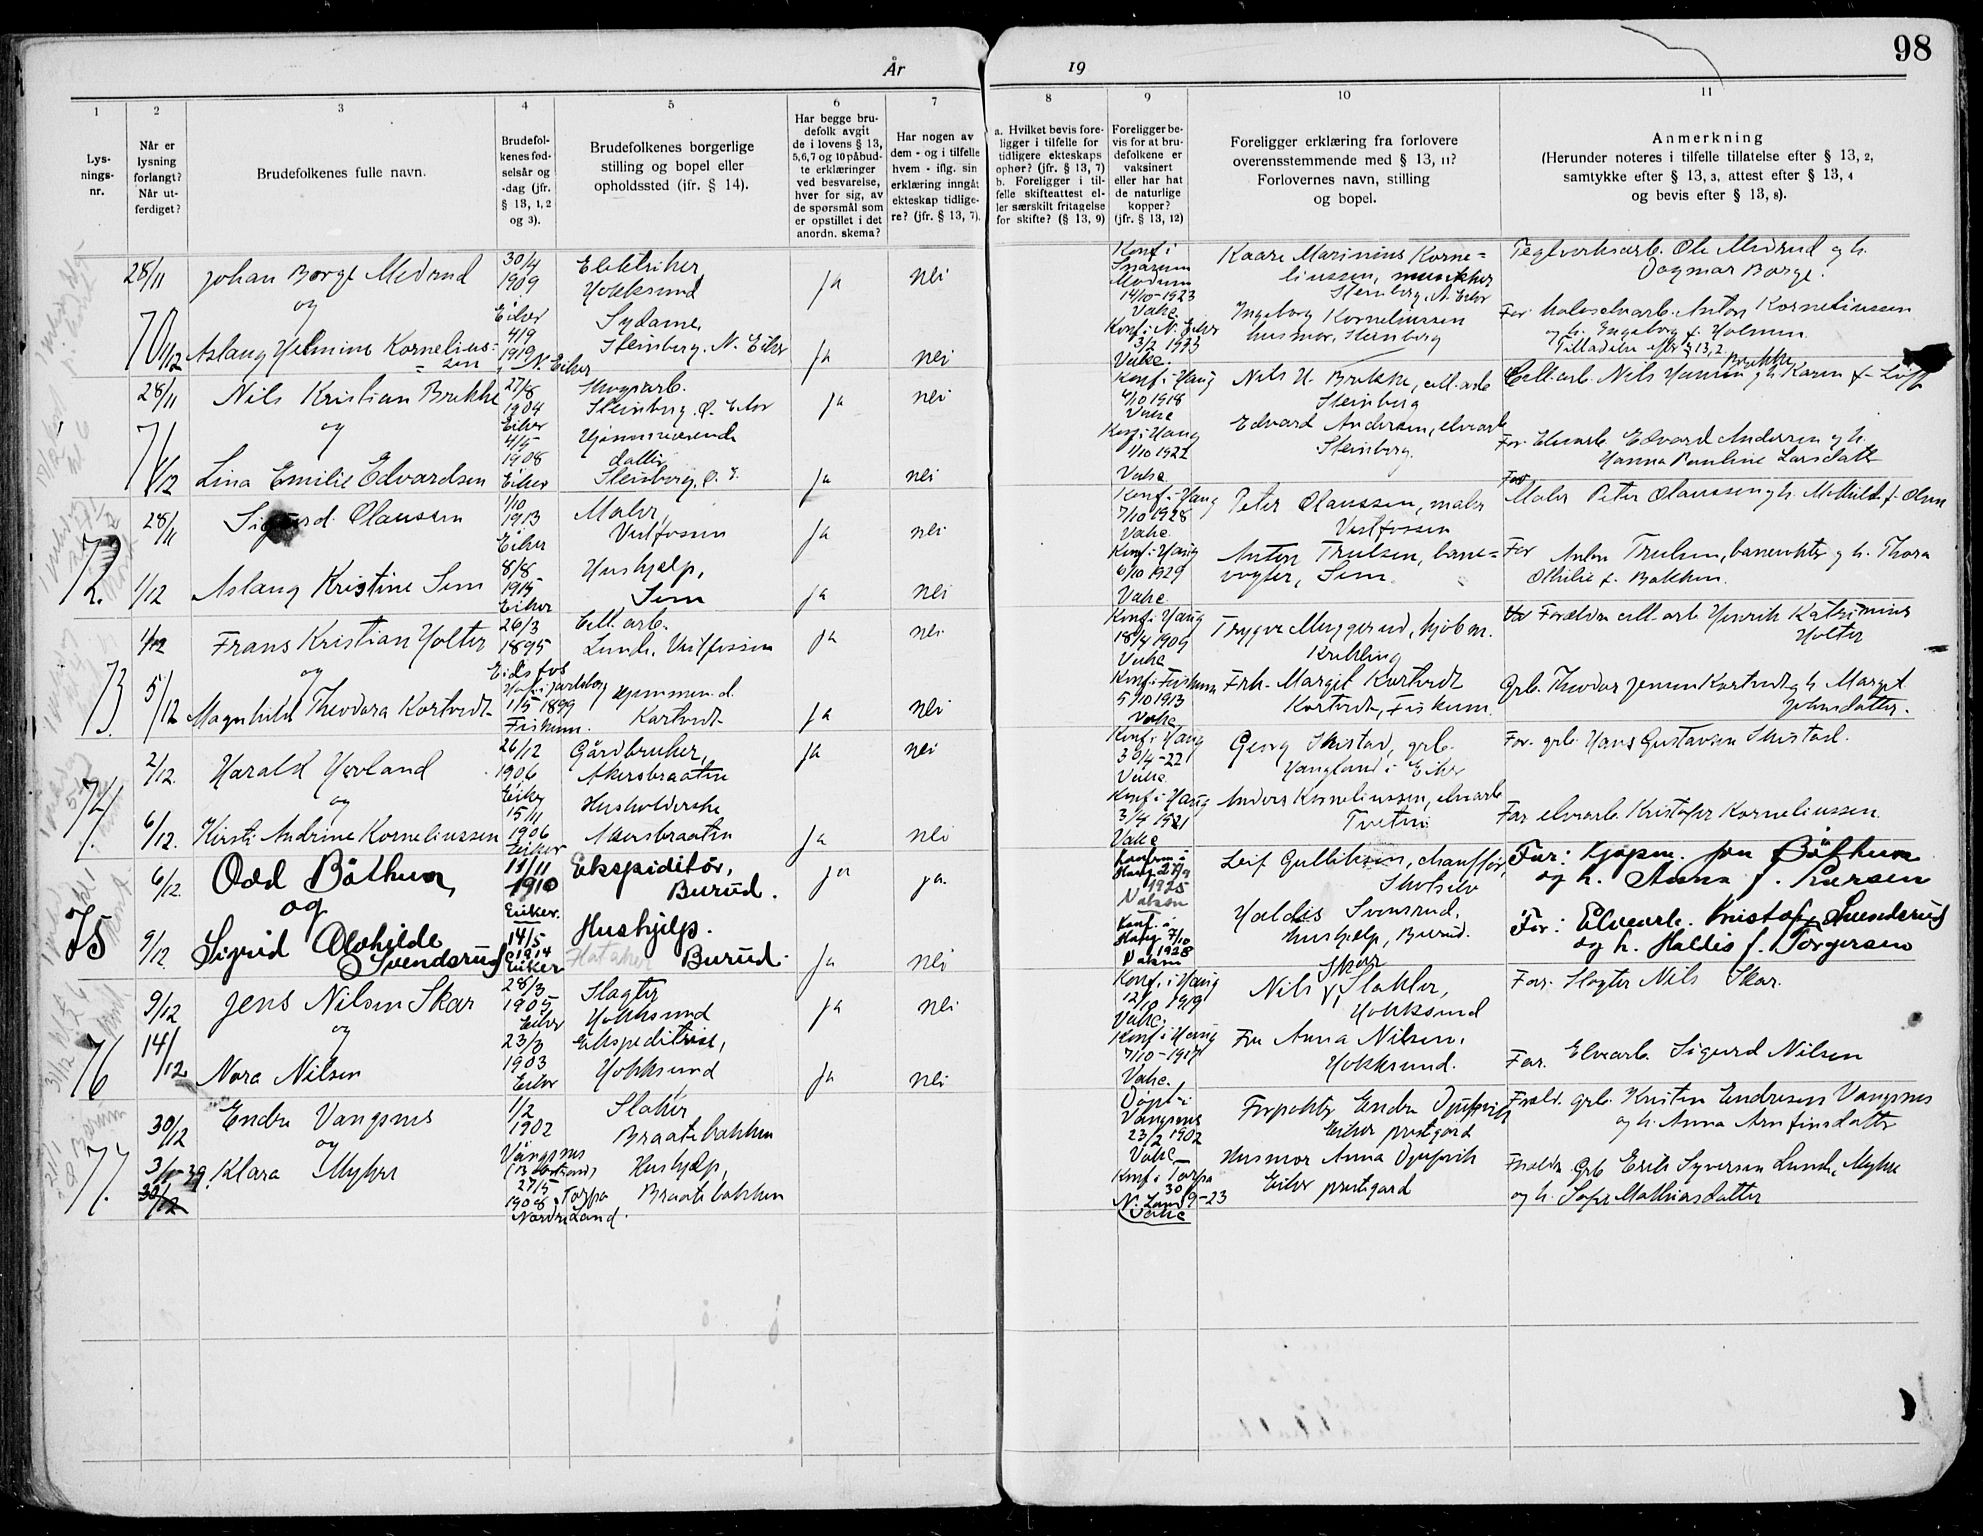 98
År
19
1
2
3
4
5
6
7
8
9
10
11
Lys-
nings-
nr.
Når er
lysning
forlangt?
Når ut-
ferdiget?
Brudefolkenes fulle navn.
Brudefol-
kenes fød-
selsår og
-dag (jfr.
§ 13, 1, 2
og 3).
Brudefolkenes borgerlige
stilling og bopel eller
opholdssted (jfr. § 14).
Har begge bru-
defolk avgit
de i lovens § 13,
5,6,7 og 10 påbud-
te erklæringer
ved besvarelse,
hver for sig, av
de spørsmål som
er opstillet i det
anordn. skema?
Har nogen av
dem - og i tilfelle
hvem - iflg. sin
erklæring inngått
ekteskap tidlige-
re? (jfr. § 13, 7).
a. Hvilket bevis fore-
ligger i tilfelle for
tidligere ekteskaps
ophør? (jfr. § 13, 7)
b. Foreligger i til-
felle skifteattest el-
ler særskilt fritagelse
for skifte? (§ 13, 9)
Foreligger be-
vis for at bru-
defolkene er
vaksinert
eller har hat
de naturlige
kopper?
(jfr. § 13, 12)
Foreligger erklæring fra forlovere
overensstemmende med § 13, 11?
Forlovernes navn, stilling
og bopel.
Anmerkning
(Herunder noteres i tilfelle tillatelse efter § 13, 2,
samtykke efter § 13, 3, attest efter § 13, 4
og bevis efter § 13, 8).
70
28/11
Johan Borge Medrud
og
30/4
1909
Eiker
Elektriker,
Hokksund
ja
nei
Konf i
Snarum
Modum
14/10-1923
Vakc.
Kaare Marinius Korne=
liussen, musikker
Steinberg, N. Eiker
Teglverksarb. Ole Medrud og h.
Dagmar Borge.
1/12
Aslaug Helmine Kornelius=
= sen
4/9
1919
N. Eiker
Sydame,
Steinberg, N. Eiker
ja
nei
Konf i N. Eiker
3/2 1923
Vakc.
Ingeborg Korneliussen
husmor, Steinberg
For Anton Korneliussen
og h. Ingeborg f. Holmen.
Tilladelse efter § 13, 2
71
28/11
Nils Kristian Brekke
og
27/8
1904
Eiker
Skogsarb.
Steinberg, Ø. Eiker
ja
nei
Konf i Haug
6/10 1918
Vakc
Nils H. Brekke, cell.arb
Steinberg
Cell.arb. Nils Hansen Brekke og h. Karen f.
1/12
Lina Emilie Edvardsen
4/5
1908
Eiker
Hjemmeværende
datter
Steinberg, Ø. E.
ja
nei
Konf i Haug
1/10 1922
Vakc
Edvard Andersen, elvearb
Steinberg.
For. Elvearb. Edvard Andersen og h.
Hanna Pauline Larsdatter
72.
28/11
Sigurd Olaussen
1/10
1913
Eiker
Maler,
Vestfossen
ja
nei
Konf. i Haug
7/10 1928
Vakc
Peter Olaussen, maler
Vestfossen
For
Maler Peter Olaussen og h. Mathilde f. Olsen
1/12
Aslaug Kristine Sem
8/8
1915
Eiker
Hushjelp,
Sem
ja
nei
Konf i Haug
6/10 1929
Vakc
Anton Trulsen, bane=
vogter, Sem
For Anton Trulsen, banevokter og h. Thora
Othilie f. Bakken.
73.
1/12
Frans Kristian Holter
og
26/3
1895
Eidsfos
Hof i Jarlsberg
Cell. arb.
Lunde, Vestfossen
ja
nei
Konf i Haug
18/4 1909
Vakc
Trygve Muggerud, kjøbm.
Krekling
Foreldre cell. arb Henrik Katrinius
Holter
5/12
Magnhild Theodora Kortvedt
1/5 1899
Fiskum.
Hjemmev. d.
Kortvedt
ja
nei
Konf. i Fiskum
5/10 1913
Vakc
Frk. Margit Kortvedt
Kortvedt, Fiskum.
Grb. Theodor Jensen Kortvedt og h. Marget
Johnsdatter.
74.
2/12.
Harald Hovland
og
26/12
1906
Eiker
Gårdbruker,
Akersbraaten
ja
nei
Konf. i Haug
30/4-22
Vakc.
Georg Skistad, grb.
Haugland i Eiker
For. grb. Hans Gustavsen Skistad.
6/12.
Kirsti Andrine Korneliussen
15/11
1906
Eiker
Husholderske
Akersbraaten
ja
nei
Konf. i Haug
3/4 1921
Vakc
Anders Korneliussen, elvearb
Tveten
Far elvearb. Kristofer Korneliussen.
75
6/12.
Odd Båthun,
og
11/11
1910
Eiker.
Ekspeditør,
Burud.
ja
ja.
Konfirm i
Haug 27/9
1925
Vaksin
Leif Gulliksen, chauffør,
Skotselv
For: Kjøpm. Jon Båthun
og h. Anna f. Iversen
9/12
Sigrid Alvhilde
Svendsrud
14/5
1914
Eiker
Hushjelp.
Burud.
ja
nei
Konf. i
Haug 7/10
1928
Vaksin
Haldis Svensrud,
hushjelp, Burud.
For: Elvearb. Kristofer Svendsrud
og h. Haldis f. Torgersen
76
9/12
Jens Nilsen Skar
og
28/3
1905
Eiker
Slagter
Hokksund
ja
nei
Konf. i Haug
12/10 1919
Vakc.
Nils Skar, Slakter,
Hokksund
Far. Slagter Nils Skar.
14/12
Nora Nilsen
23/3
1903
Eiker
Ekspeditrise,
Hokksund
ja
nei
Konf. i Haug
7/10-1917
Vakc.
Fru Anna Nilsen,
Hokksund.
Far. Elvearb. Sigurd Nilsen
77.
30/12
Endre Vangsnes
og
1/2
1902
Vangsnes
Slakter
Braatebakken
Døpt i
Vangsnes
23/2 1902
Vakc
Forpakter Endre
Eiker prestgard
Foreldr. grb. Kristen Endresen Vangsnes
og h. Anna Arnfinsdatter
3/1-39.
30/12
Klara Myhre
27/5
1908 Torpa
Nordre Land.
Hushjelp,
Braatebakken
Konf i Torpa
N. Land 30/9-23
Vakc
Husmor Anna
Eiker prestgard
Foreldr. Grb Erik Syversen Lunde Myhre
og h. Sofie Mathiasdatter